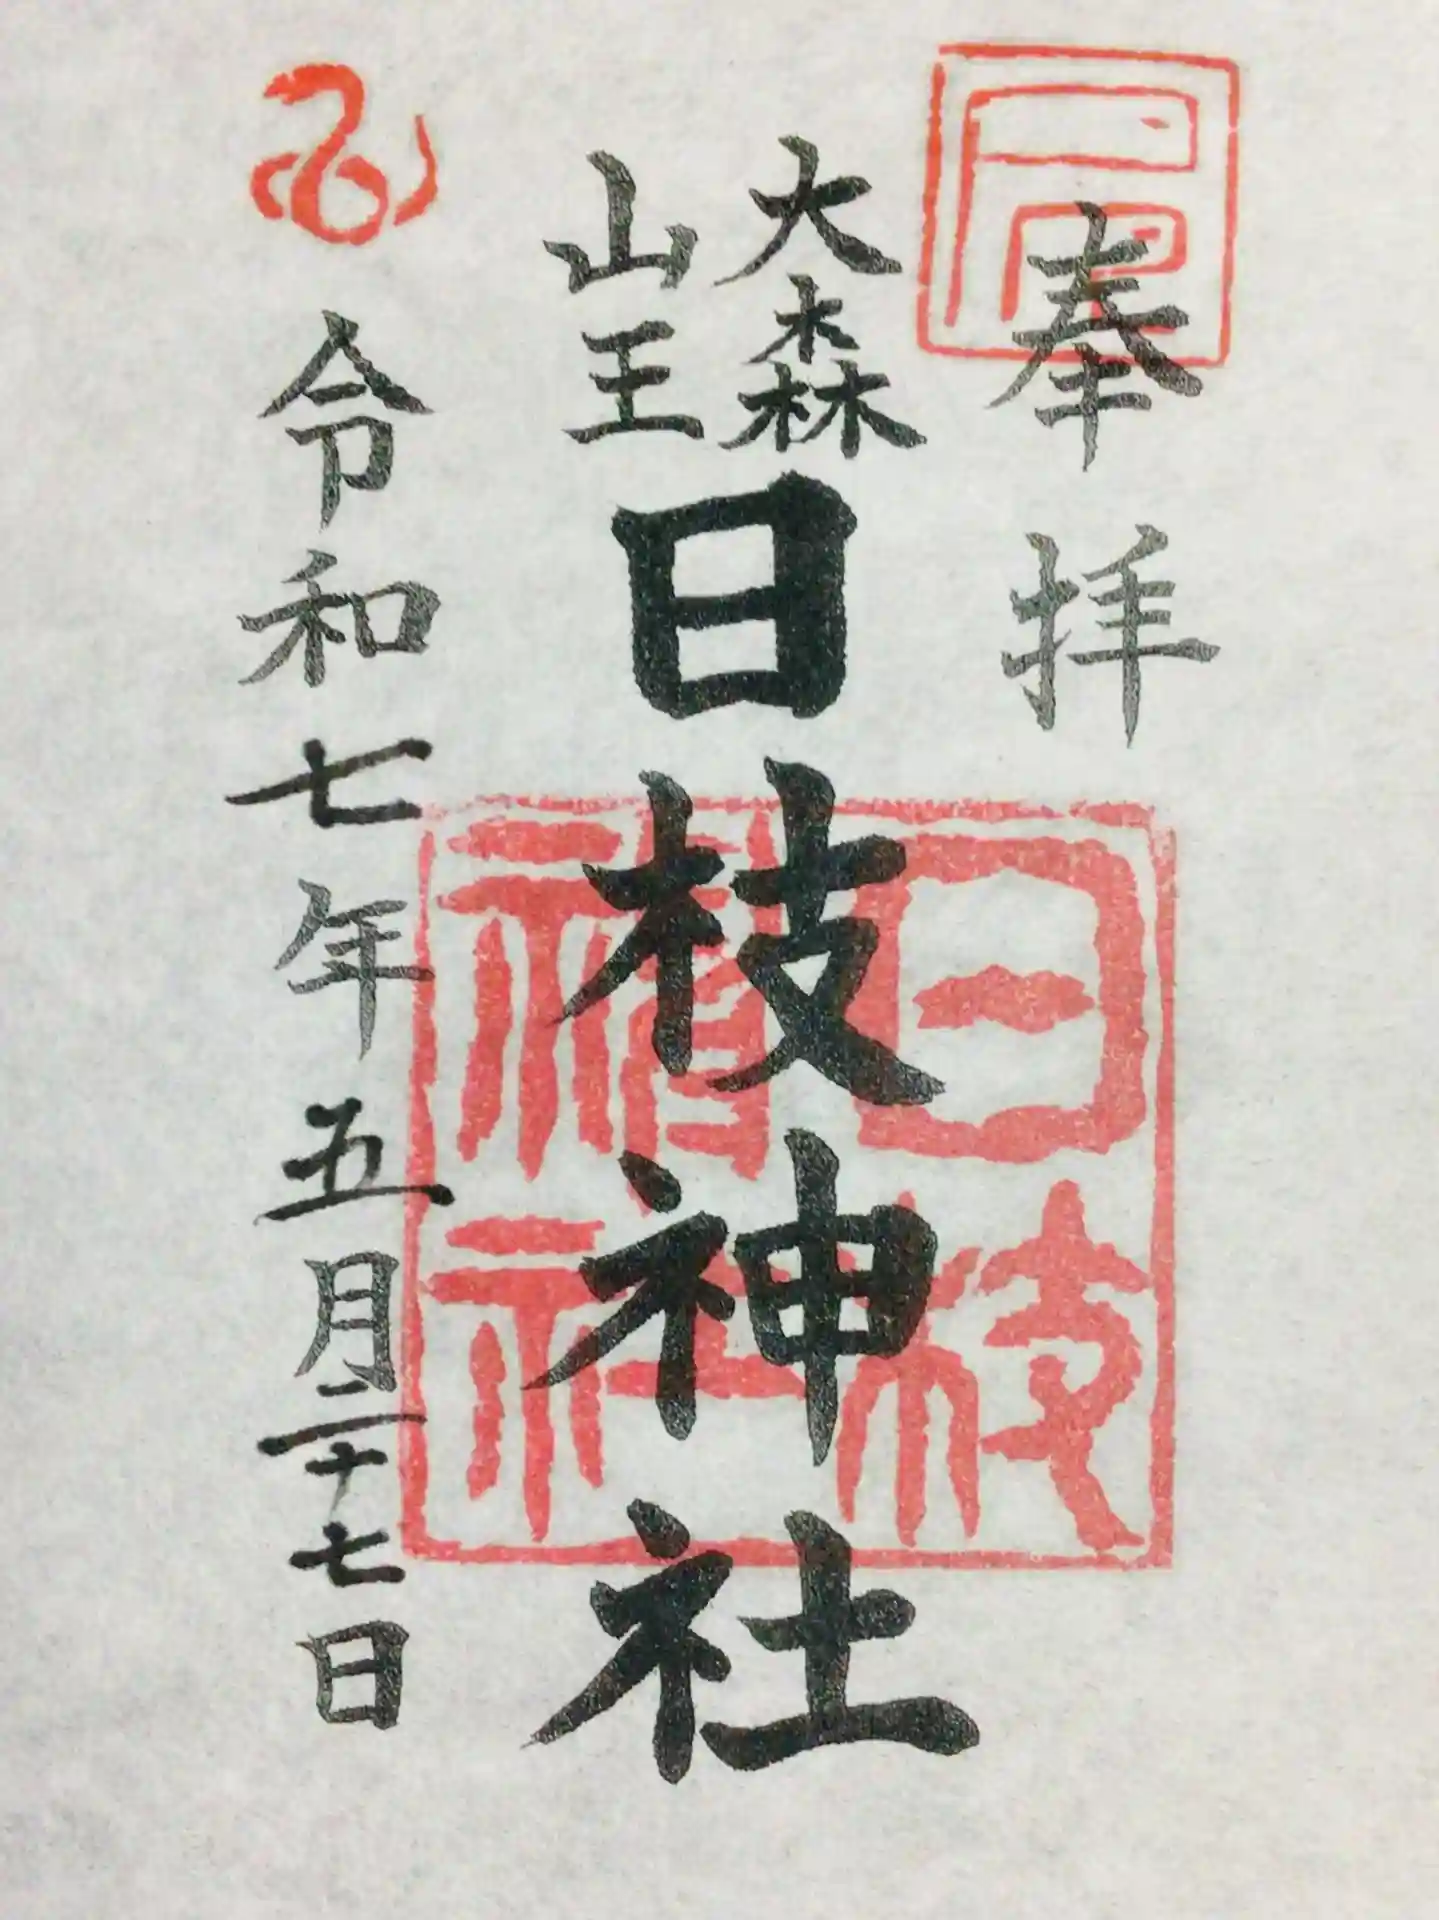 奉拝
大森
山王
日枝神社
日枝神社
令和七年五月二十七日